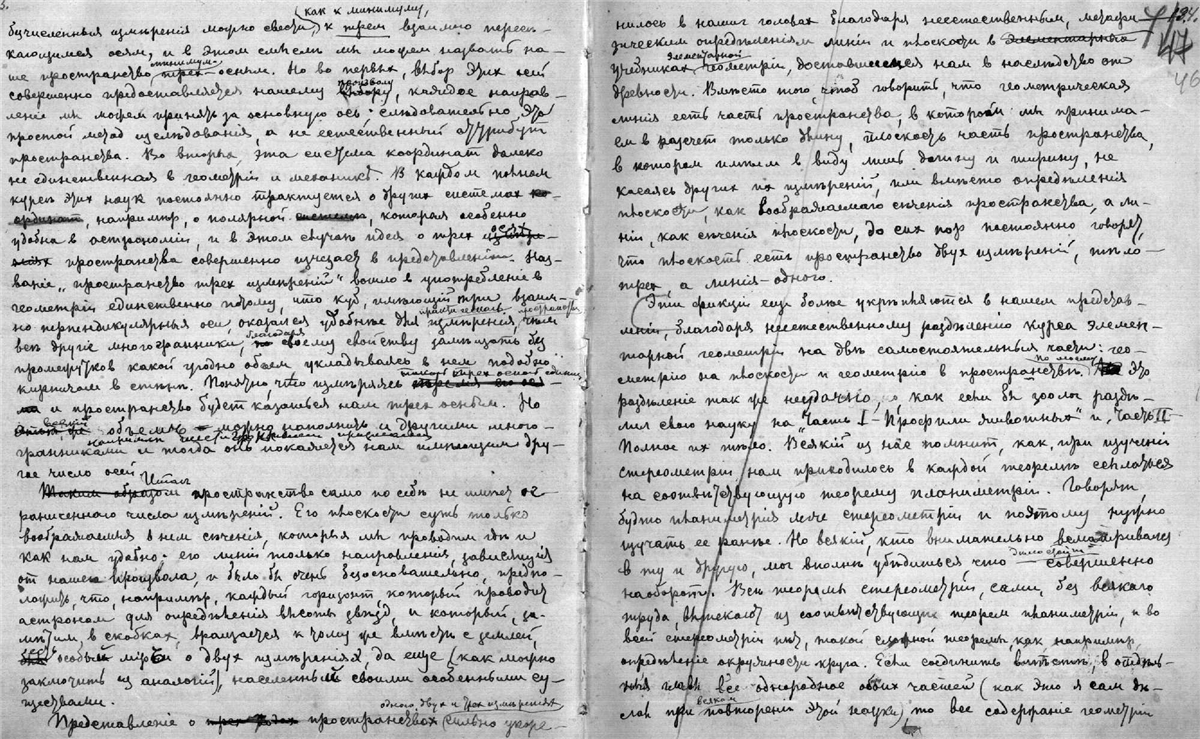 3.
какъ къ минимуму,
безчисленныя измѣренія можно свести къ тремъ взаимно пересѣ-
кающимся осямъ, и въ этомъ смыслѣ мы можемъ назвать на-
ше пространство трех-оснымъ. Но во первыхъ, выборъ этихъ осей
совершенно предоставляется нашему произволу, каждое направ-
леніе мы можемъ принять за основную ось: слѣдовательно это
простой методъ изслѣдованія, а не естественный аттрибутъ
пространства. Во вторыхъ, эта система координатъ далеко
не единственная въ геометріи и механикѣ. Въ каждомъ полномъ
курсѣ этихъ наукъ постоянно трактуется о другихъ системахъ ко-
ординатъ, напримѣръ, о полярной системѣ, которая особенно
удобна въ астрономіи, и въ этомъ случаѣ идея о трехъ осяхъ
пространства совершенно исчезаетъ въ представленіи. Наз-
ваніе „пространство трехъ измѣреній" вошло въ употребленіе въ
геометріи единственно потому, что кубъ, имѣющій три взаим-
но перпендикулярныя оси, оказался удобнѣе для практическаго измѣренія, чѣмъ
всѣ другіе многогранники, благодаря своему свойству замѣщать безъ
промежутковъ какой угодно объемъ укладываясь въ немъ подобно
кирпичамъ въ стѣнѣ. Понятно что измѣряясь такою трех осной единицей
и пространство будетъ казаться намъ трех оснымъ. Но
всякій объемъ можно наполнить и другими много-
гранниками и тогда онъ покажется намъ имѣющимъ дру-
гое число осей
Итакъ
Такимъ образомъ пространство само по себѣ не имѣетъ ог-
раниченнаго числа измѣреній. Его плоскости суть только
воображаемыя въ немъ сѣченія, которыя мы проводимъ гдѣ и
какъ намъ удобно: его линіи только направленія, зависящія
отъ нашего произвола, и было бы очень безосновательно, предпо-
ложить, что, напримѣръ, каждый горизонтъ который проводитъ
астрономъ для опредѣленія высоты звѣзды, и который, за-
мѣтимъ, въ скобкахъ, вращается къ тому же вмѣстѣ съ землей
особый міръ о двухъ измѣреніяхъ, да еще (какъ можно
заключить изъ аналогіи) населенный своими особенными су-
ществами.
одного, двухъ и трехъ измѣреніяхъ
Представленіе о пространствахъ сильно укоре-
нилось въ нашихъ головахъ благодаря неестественнымъ, метафи-
зическимъ опредѣленіямъ линіи и плоскости въ элементарныхъ
учебникахъ элементарной геометріи, доставшихся намъ въ наслѣдство отъ
древности. Вмѣсто того чтобъ говорить, что геометрическая
линія есть часть пространства, въ которой мы принима-
емъ въ разсчетъ только длину, плоскость часть пространства,
въ которомъ имѣемъ въ виду лишь длину и ширину, не
касаясь другихъ ихъ измѣреній, или вмѣсто опредѣленія
плоскости какъ воображаемаго сѣченія пространства, а ли-
ніи, какъ сѣченія плоскости, до сихъ поръ постоянно говорятъ,
что плоскость есть пространство двухъ измѣреній, тѣло-
трехъ, а линія-одного.
Эти фикціи еще болѣе укрѣпляются въ нашемъ представ-
леніи, благодаря неестественному раздѣленію курса элемен-
тарной геометріи на двѣ самостоятельныя части: гео-
метрію на плоскости и геометрію въ пространствѣ. По моему это
раздѣленіе такъ же неудачно, какъ если бы зоологъ раздѣ-
лилъ свою науку на „Часть I - Профили животныхъ" и „Часть II
Полное ихъ тѣло. Всякій изъ насъ помнитъ, какъ при изученіи
стереометріи намъ приходилось въ каждой теоремѣ ссылаться
на соотвѣтствующую теорему планиметріи. Говорятъ,
будто планиметрія легче стереометріи и поэтому нужно
изучать ее раньше. Но всякій, кто внимательно всматривался
въ ту и другую, могъ вполнѣ убѣдиться что совершенно
наоборотъ. Всѣ теоремы стереометріи, сами, безъ всякаго
труда, вытекаютъ изъ соотвѣтствующихъ теоремъ планиметріи, и во
всей стереометріи нѣтъ такой сложной теоремы, какъ напримѣръ,
опредѣленіе окружности круга. Если соединить вмѣстѣ, въ отдѣль-
ныя главы все однородное обоихъ частей (какъ это я самъ дѣ-
лалъ при всякомъ повтореніи этой науки), то все содержаніе геометріи
47
46